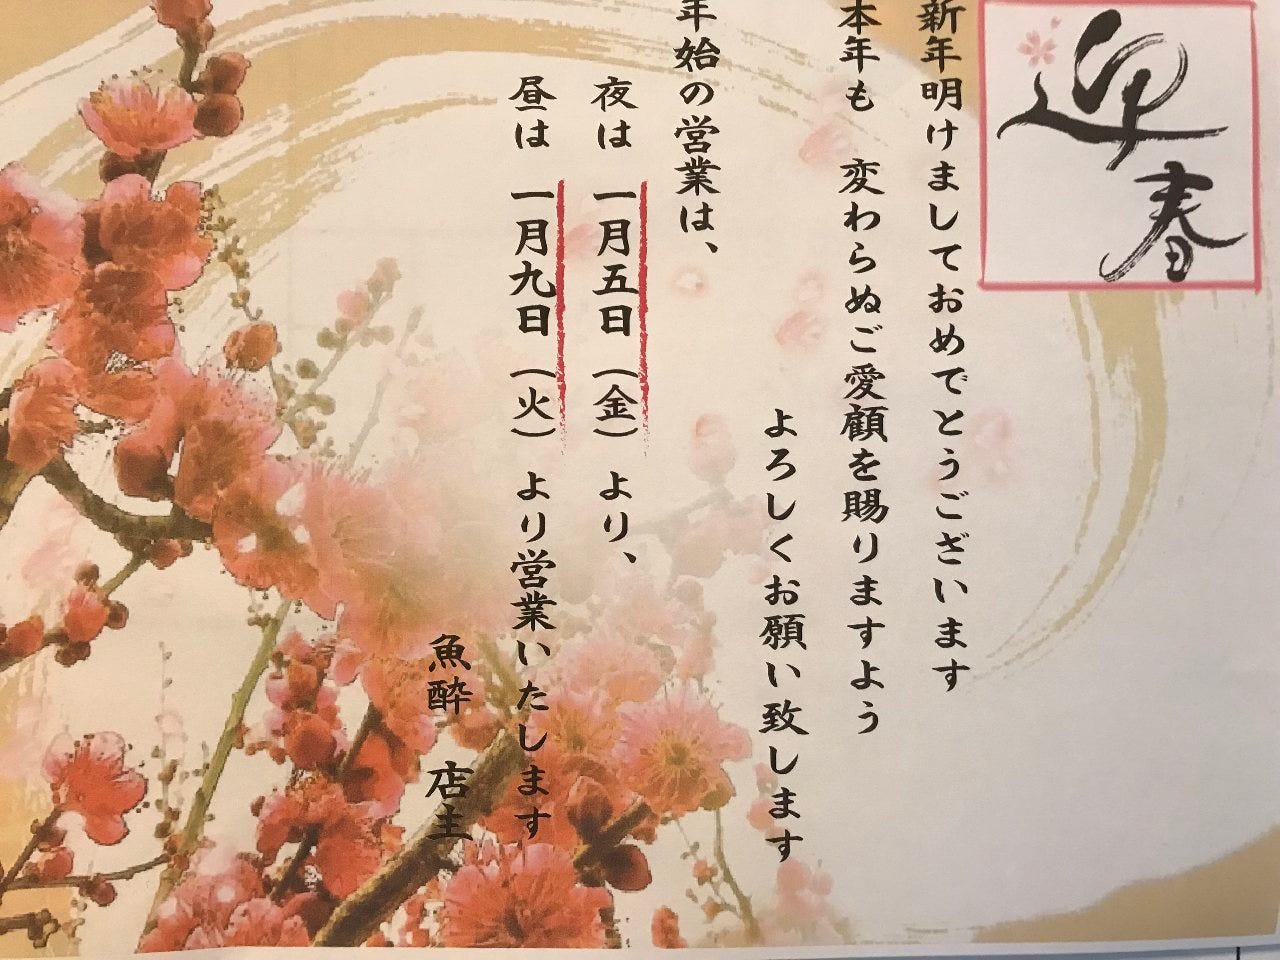 迎春
新年明けましておめでとうございます
本年も 変わらぬご愛顧を賜りますよう
よろしくお願い致します
年始の営業は、
夜は 一月五日(金)より、
昼は 一月九日(火)より営業いたします
魚酔 店主